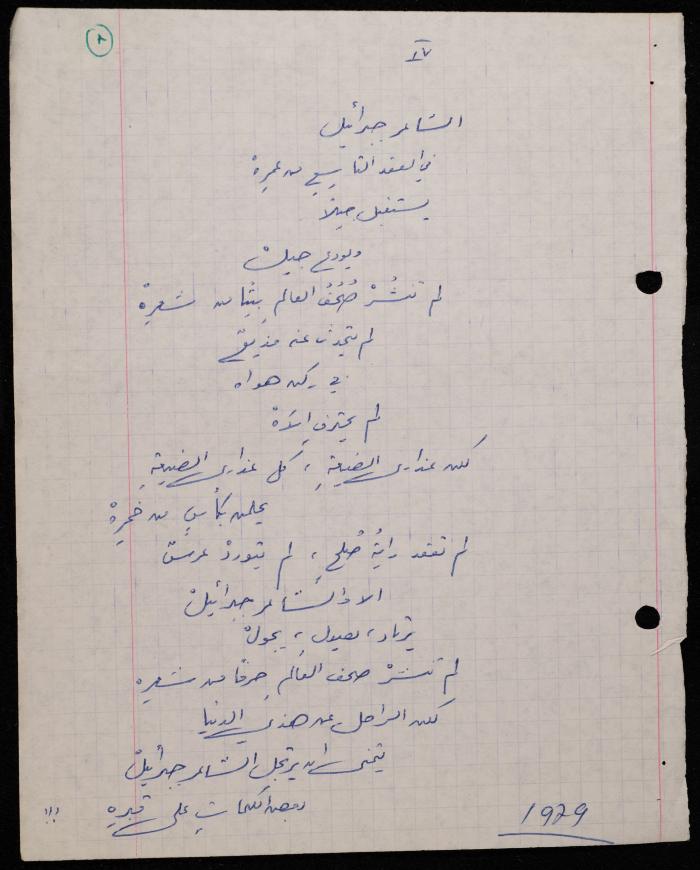 ٢
IV
الشاعر جبرائيل
في العقد التاسعِ من عمرِهْ
يستقبل جيلًا
ويودع جيلْ
لم تنشُرْ صُحُفُ العالم بيتًا من شعرِهْ
لم يتحدث عنه مذيعٌ
في ركن هواه
لم يحترفِ إلاهْ
لكن عذارى الضيعةِ، كل عذارى الضيعةِ
يحلمن بكأسٍ من خمرِهْ
لم تعقد رايةُ صُلحٍ، لم يتوردْ عرسٌ
الا والشاعر جبرائيلْ
يرتاد، يصول، يجولْ
لم تنشرْ صحف العالمِ حرفًا من شعرِهِ
لكن الراحل عن هذي الدنيا
يتمنى ان يرتجل الشاعر جبرائيلْ
بعض الكلماتِ على قبرِهِ !!!
1979